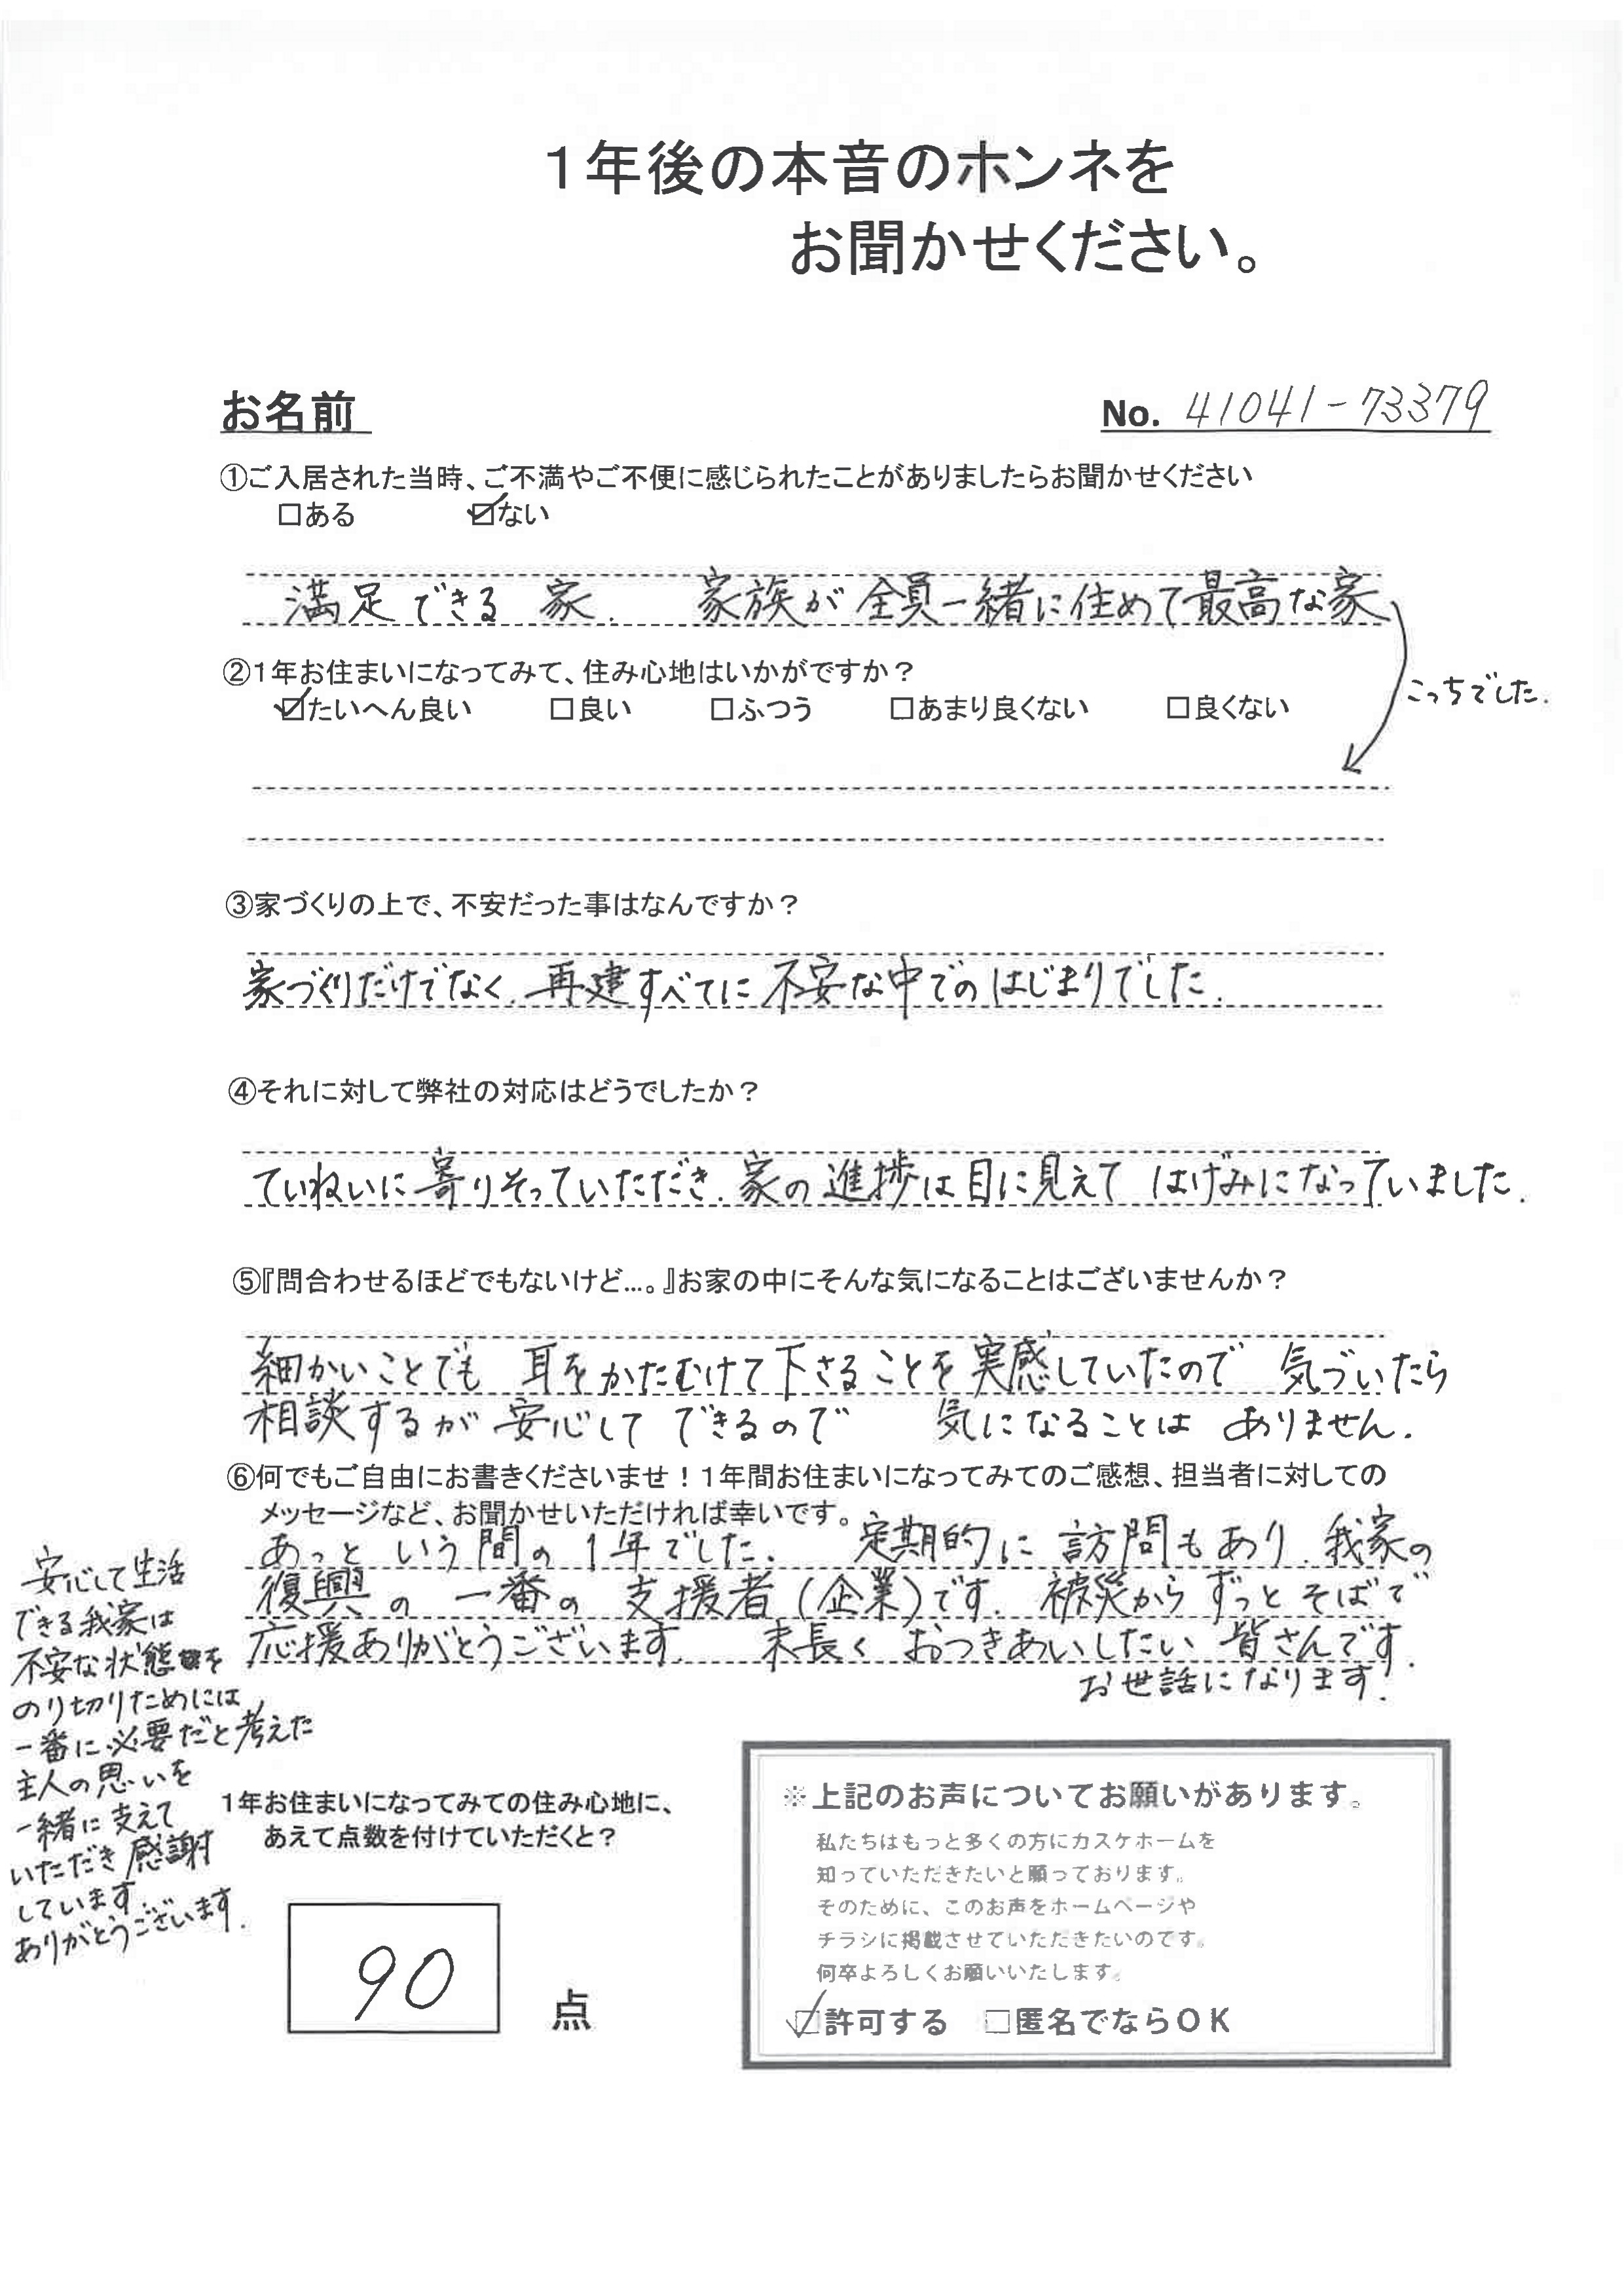 1年後の本音のホンネを
お聞かせください。
お名前
No. 41041-73379
①ご入居された当時、ご不満やご不便に感じられたことがありましたらお聞かせください
□ある ☑ない
満足できる 家. 家族が 全員一緒に住めて最高な家
②1年お住まいになってみて、住み心地はいかがですか？
☑たいへん良い □良い □ふつう □あまり良くない □良くない
こっちでした.
③家づくりの上で、不安だった事はなんですか？
家づくりだけでなく. 再建すべてに 不安な中での はじまりでした.
④それに対して弊社の対応はどうでしたか？
ていねいに寄りそっていただき. 家の進捗は目に見えて はげみになっていました.
⑤『問合わせるほどでもないけど…。』お家の中にそんな気になることはございませんか？
細かいことでも 耳をかたむけて下さることを実感していたので 気づいたら
相談するが 安心して できるので 気になることは ありません.
⑥何でもご自由にお書きくださいませ！1年間お住まいになってみてのご感想、担当者に対しての
メッセージなど、お聞かせいただければ幸いです。
あっと いう間の 1年でした. 定期的に 訪問もあり. 我家の
復興の 一番の 支援者（企業）です. 被災から ずっと そばで
応援ありがとうございます. 末長く おつきあいしたい 皆さんです.
お世話になります!
安心して生活
できる我家は
不安な状態を
のり切りためには
一番に必要だと考えた
主人の思いを
一緒に支えて
いただき感謝
しています.
ありがとうございます.
1年お住まいになってみての住み心地に、
あえて点数を付けていただくと？
90 点
※上記のお声についてお願いがあります。
私たちはもっと多くの方にカスケホームを
知っていただきたいと願っております。
そのために、このお声をホームページや
チラシに掲載させていただきたいのです。
何卒よろしくお願いいたします。
☑許可する □匿名でならOK